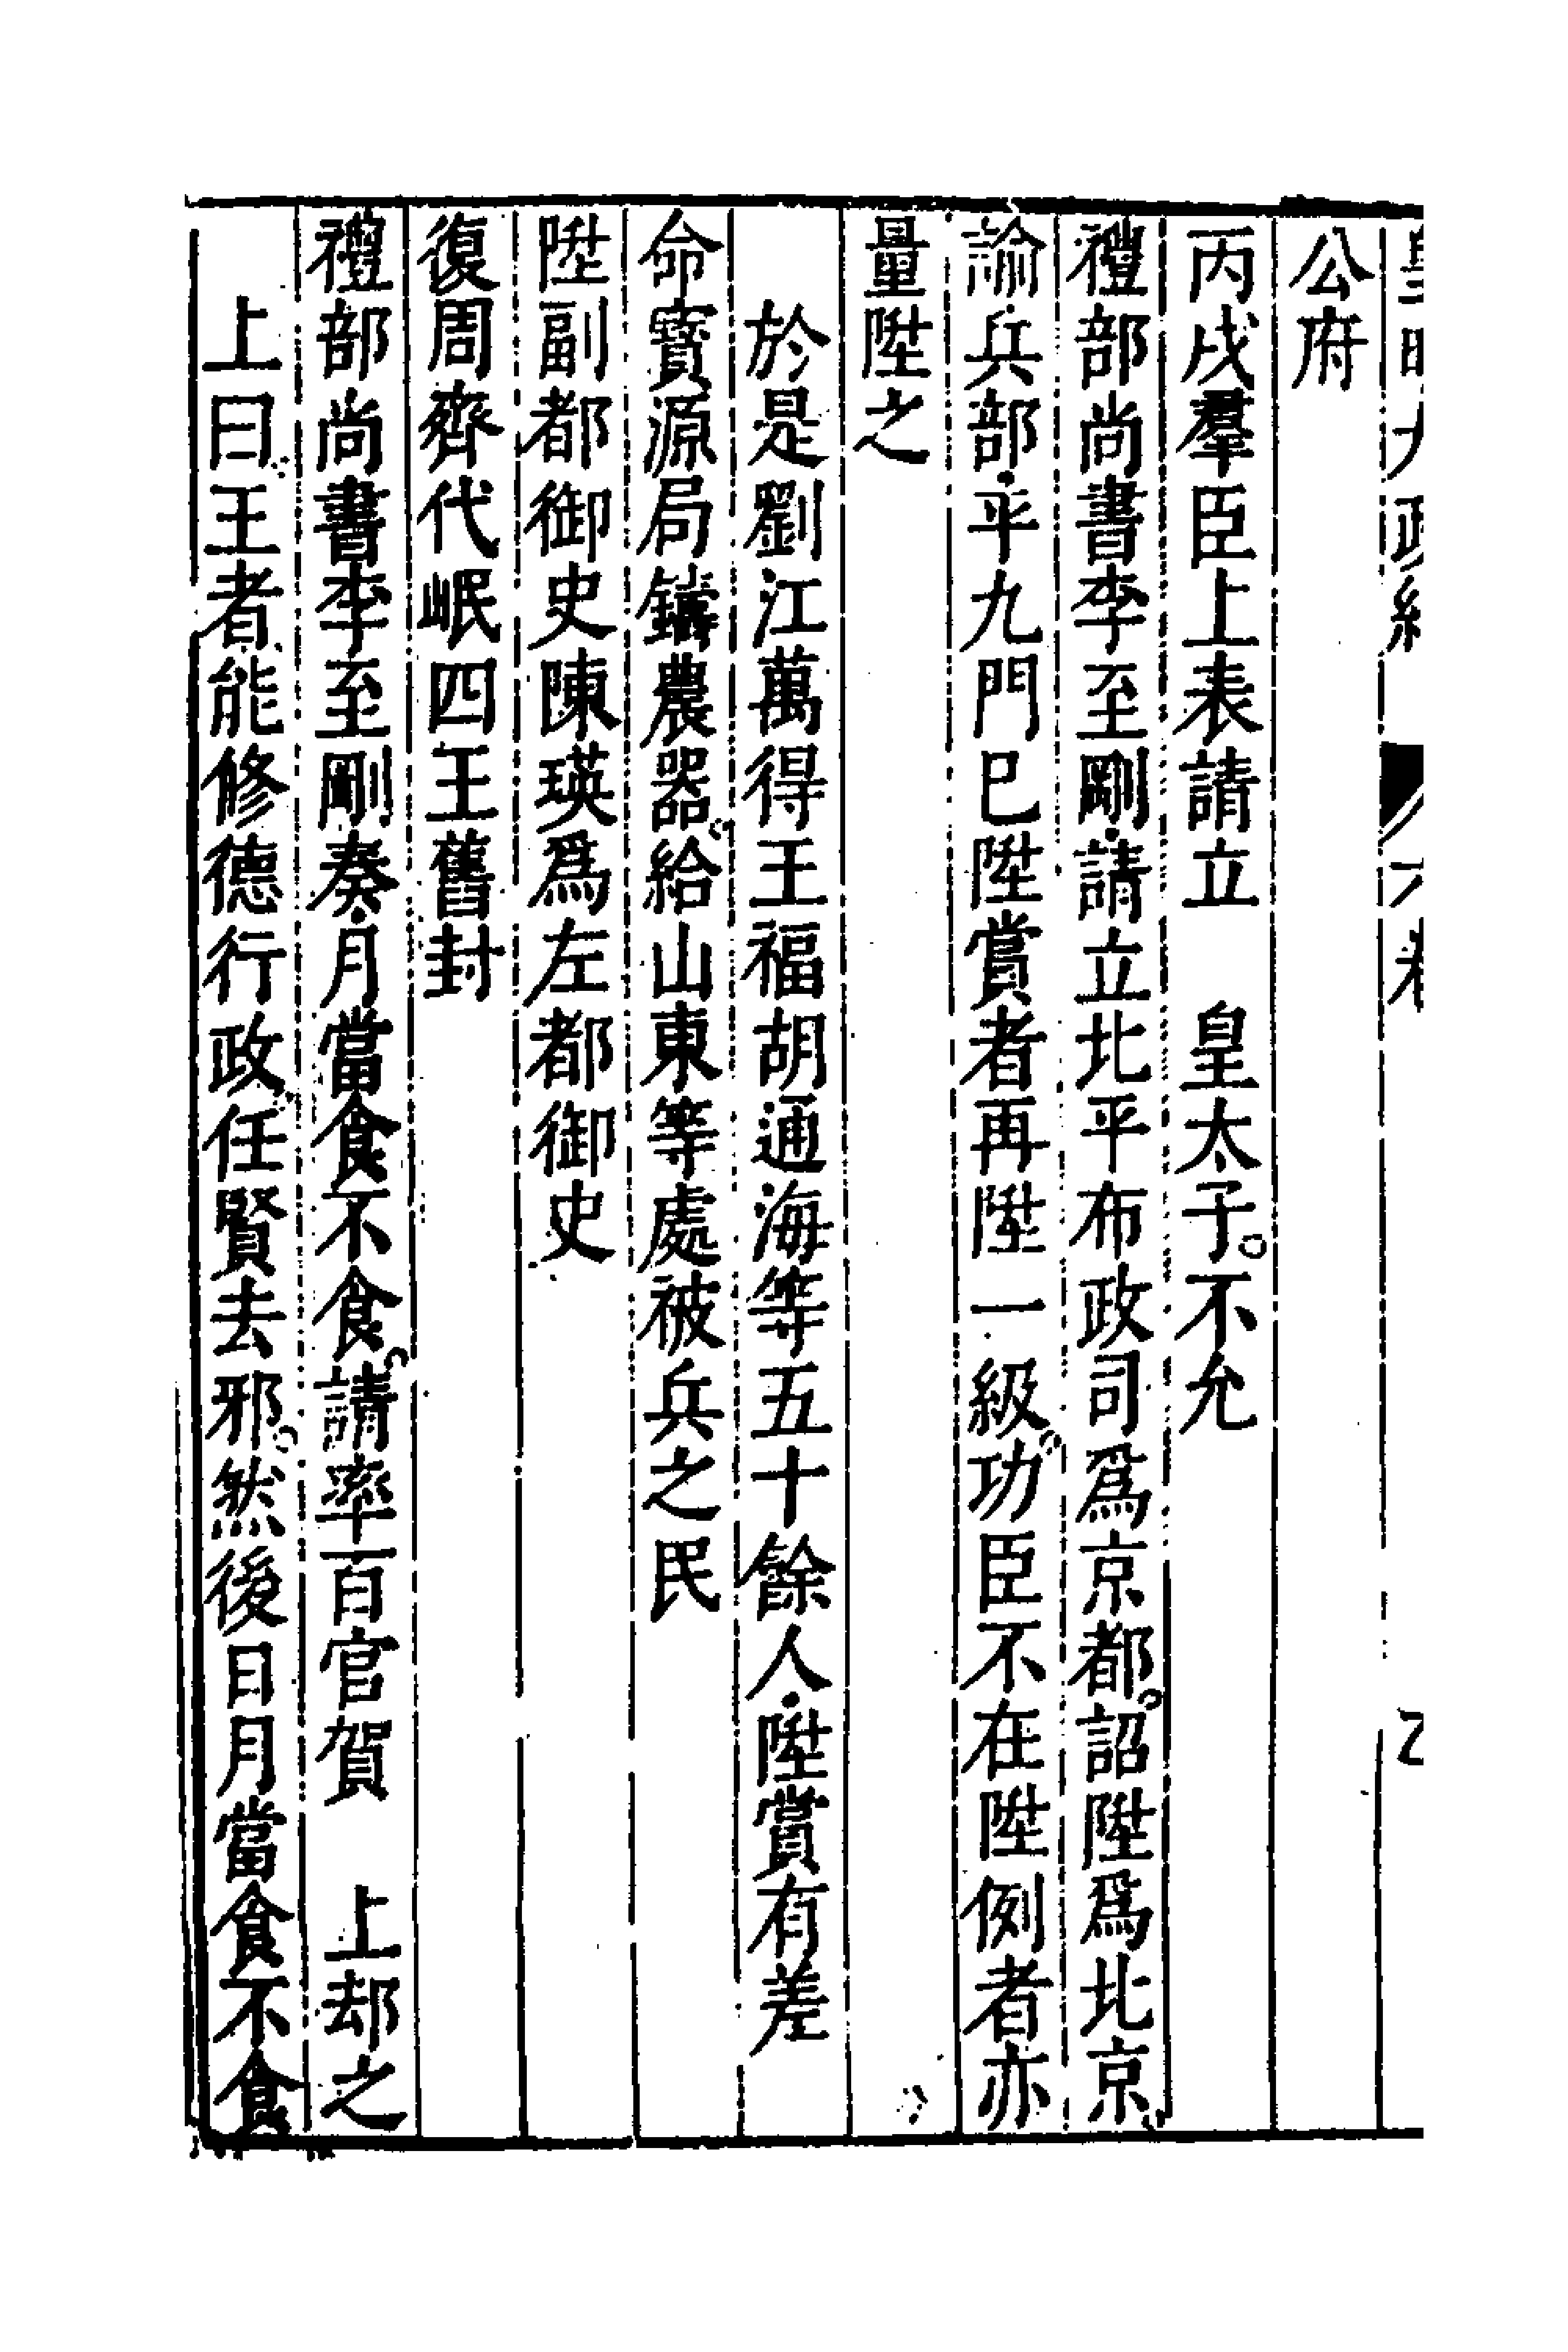 公府
丙戌羣臣上表請立　皇太子。不允
禮部尚書李至剛請立北平布政司爲京都。詔陞爲北京
諭兵部平九門已陞賞者再陞一級。功臣不在陞例者亦
量陞之
　於是劉江萬得王福胡通海等五十餘人陞賞有差
命寶源局鑄農器。給山東等處被兵之民
陞副都御史陳瑛爲左都御史
復周齊代岷四王舊封
禮部尚書李至剛奏月當食不食。請率百官賀　上却之
　上曰王者能修德行政任賢去邪。然後日月當食不食